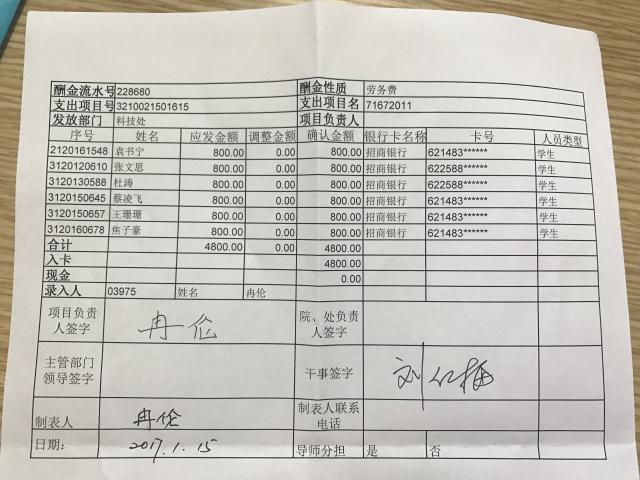 酬金流水号 228680 酬金性质 劳务费
支出项目号 3210021501615 支出项目名 71672011
发放部门 科技处 项目负责人
序号 姓名 应发金额 调整金额 确认金额 银行卡名称 卡号 人员类型
2120161548 袁书宁 800.00 0.00 800.00 招商银行 621483****** 学生
3120120610 张文思 800.00 0.00 800.00 招商银行 622588****** 学生
3120130588 杜涛 800.00 0.00 800.00 招商银行 622588****** 学生
3120150645 蔡凌飞 800.00 0.00 800.00 招商银行 621483****** 学生
3120150657 王珊珊 800.00 0.00 800.00 招商银行 621483****** 学生
3120160678 焦子豪 800.00 0.00 800.00 招商银行 621483****** 学生
合计 4800.00 0.00 4800.00
入卡 4800.00
现金 0.00
录入人 03975 姓名 冉伦
项目负责人签字 冉伦 院、处负责人签字
主管部门领导签字 干事签字 刘红梅
制表人 冉伦 制表人联系电话
日期: 2017.1.15 导师分担 是 否